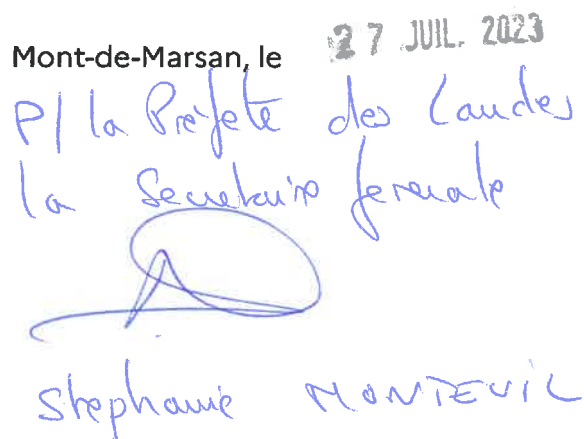 Mont-de-Marsan, le 27 JUIL. 2023
P/ la Préfete des Landes
la Secretaire generale
Stephanie MONTEUIL